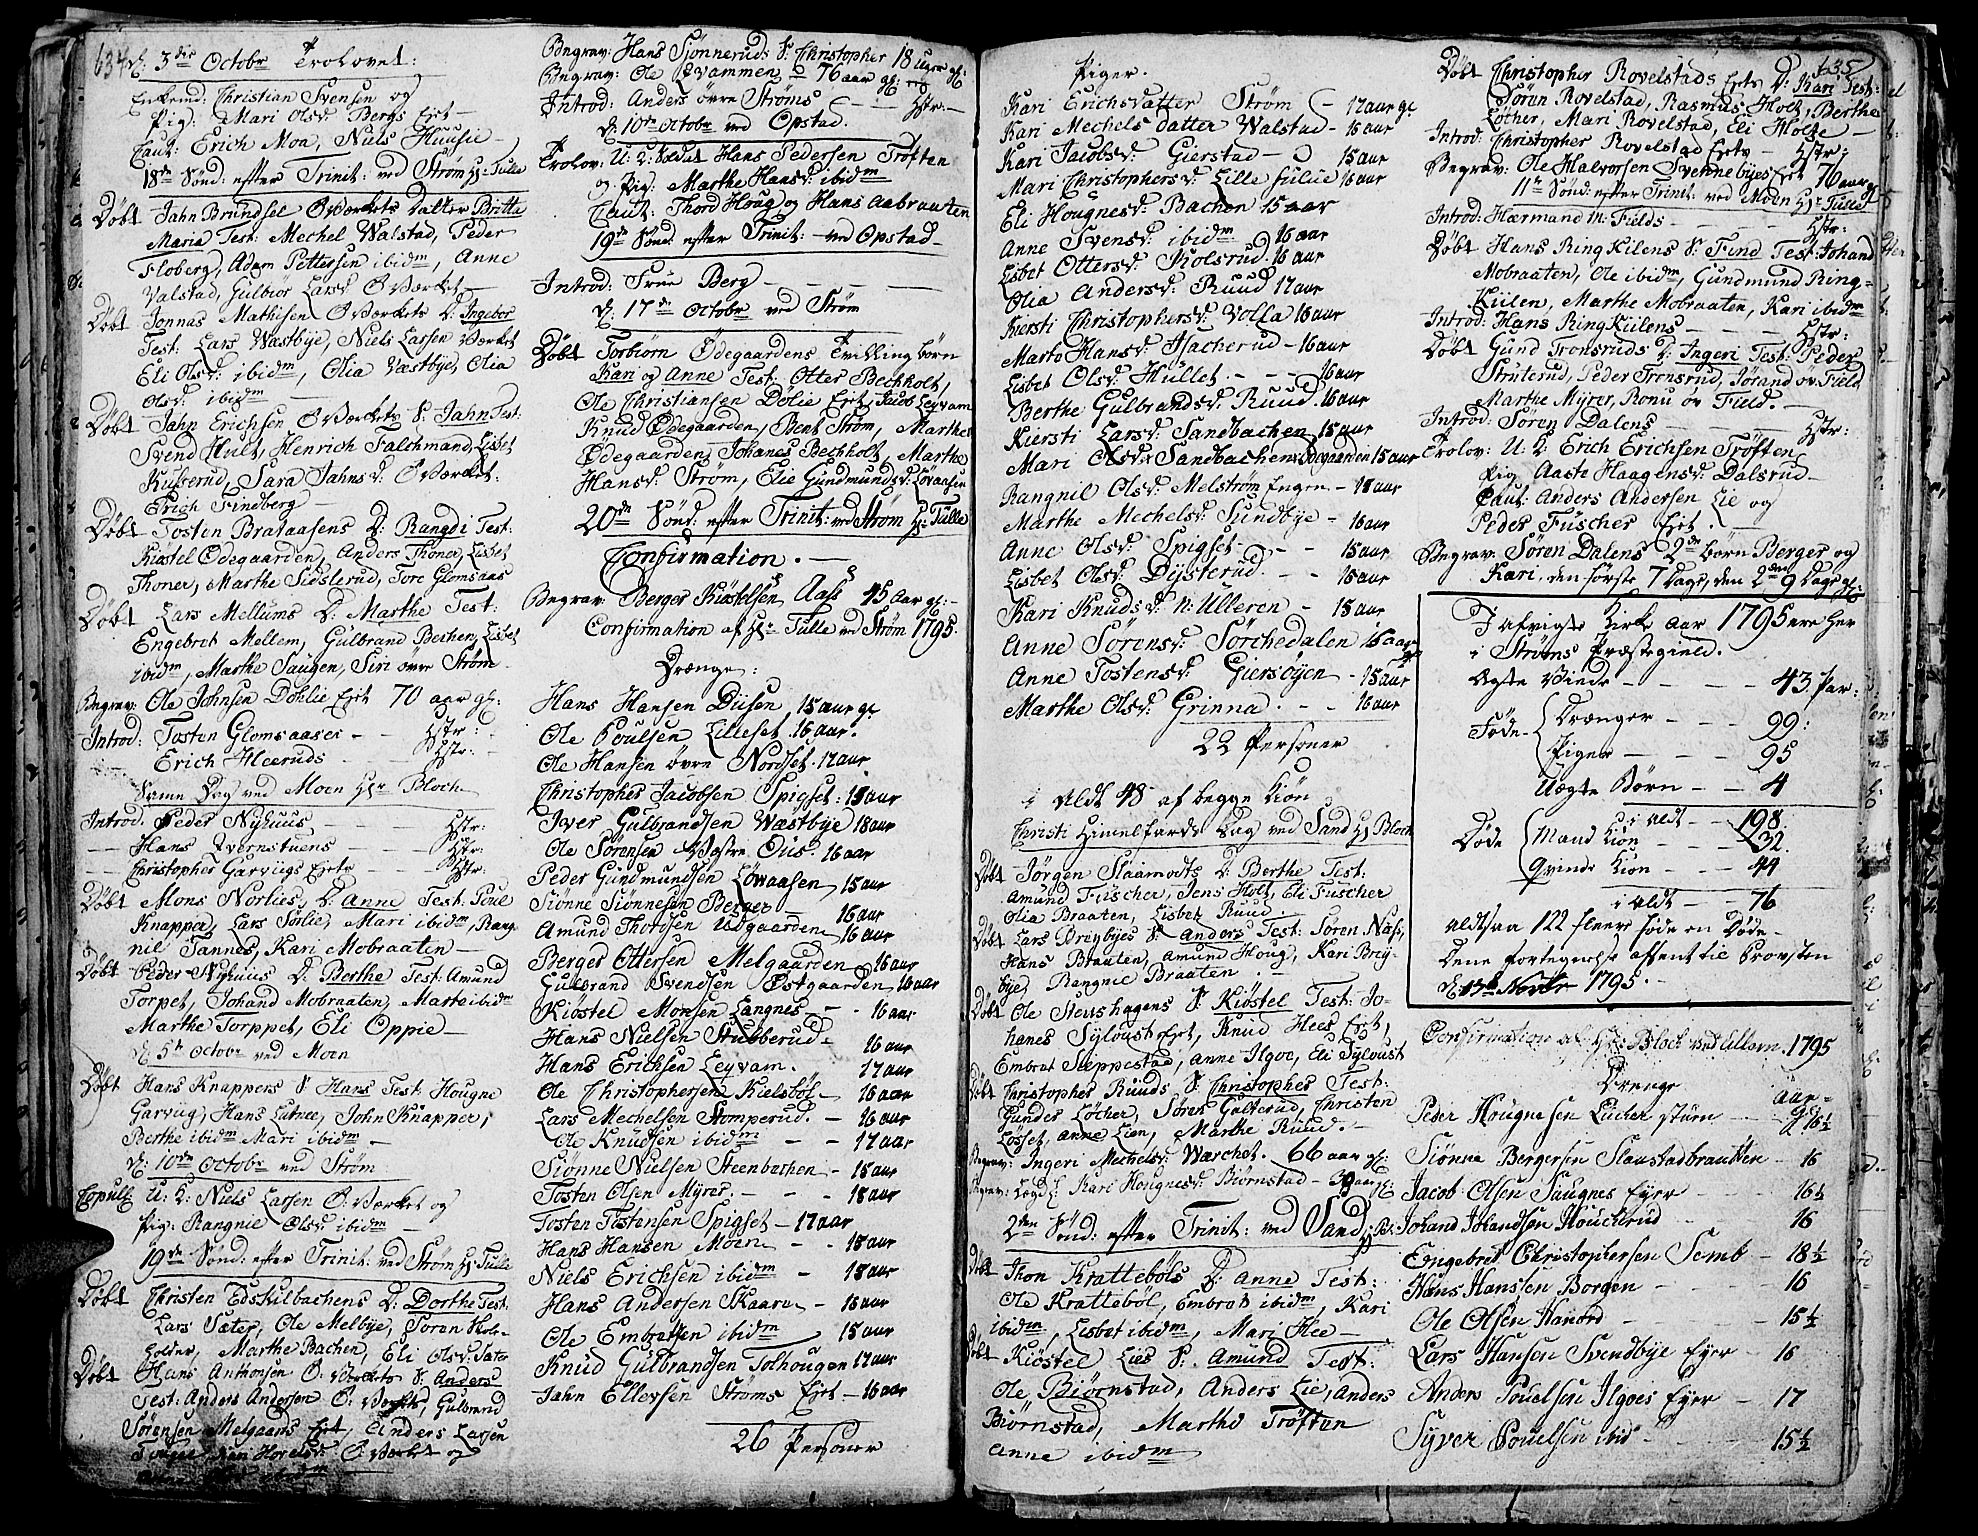 634
d. 3die Octobr Trolovet:
Enkemd: Christian Svensen og
Pig: Mari Olsd: Bergs Eiet
Caut: Erich Moa, Niels Huusie
18de Sønd: efter Trinit: ved Strøm Hr: Tulle
Døbt Jahn Brundsel Oværkets Datter Britta
Maria Test: Mechel Walstad, Peder
Floberg, Adam Pettersen ibidm, Anne
Valstad, Gulbiør Larsd Oværket
Døbt Jonnas Mathisen Oværkets D: Ingebor
Test: Lars Wæstbye, Niels Larsen Værket
Eli Olsd: ibidm, Olia Væstbye, Olia
Olsd ibidm
Døbt Jahn Erichsen Oværkets S: Jahn Test:
Svend Hult, Henrich Falchmand, Lisbet
Kusserud, Sara Jahnsd: Oværket:
Erich Findberg
Døbt Tosten Brataasens D: Rangdi Test:
Kiøstel Ødegaarden, Anders Thoner, Lisbet
Thoner, Marthe Sidslerud, Tore Glomsaas
Døbt Lars Mellums D: Marthe Test:
Engebret Mellem, Gulbrand Berhen, Lisbet
ibidm, Marthe Saugen, Siri øvre Strøm
Begrav: Ole Johnsen Dohlie Eiet 70 aar gl:
Introd: Tosten Glomsaaser - Hstr:
Erich Heeruds - Hstr:
Samme Dag ved Moen Hr Bloch
Introd. Peder Nyhuus - Hstr:
Hans Qvernstuens - Hstr:
Christopher Garviigs Eiets - Hstr:
Døbt Mons Norlies D: Anne Test: Poul
Knapper, Lars Sorlie, Mari ibidm, Rang
nil Tannes, Kari Mobraaten
Døbt Peder Nyhuus D: Berthe Test: Amund
Torpet, Johand Mobraaten, Marte ibidm
Marthe Torppet, Eli Oppie
d. 5te Octobr ved Moen
Døbt Hans Knappers S: Hans Test: Hougne
Garviig, Hans Lutnee, John Knapper,
Berthe ibidm Mari ibidm
d. 10de October ved Strøm
Copul: U: L: Niels Larsen O: Værket og
Pig: Rangnie Olsd ibidm
19de Sønd: efter Trinit: ved Strøm Hr Tulle
Døbt Christen Edskilbachens D: Dorthe Test:
Lars Sæter, Ole Melbye, Soren Skols-
holder, Marthe Bachen, Eli Olsd: Sæter
Døbt Hans Anthonsen O: Værkets S: Anders
Test: Anders Andersen O: Værket, Gulbrand
Sørensen Melgaards Eiet, Anders Larsen
Begrav: Hans Sjønnerud: S: Christopher 18 uger gl:
Begrav: Ole Qvammen 76 aar gl:
Introd: Anders øvre Strøms - Hstr:
d: 10de Octobr ved Opstad.
Trolov: U: L: Soldat Hans Pedersen Trøften
og Pig: Marthe Hansd: ibidm
Caut: Thord Houg og Hans Aabraaten
19de Sønd: efter Trinit: ved Opstad
Introd: True Berg
d: 17de Octobr ved Strøm
Døbt Torbiørn Ødegaardens Tvilling børn
Kari og Anne Test: Otter Bechholt,
Ole Christiansen Dölie Eiet Jacob Leyvam
Knud Ødegaarden, Bent Strøm, Marthe
Ødegaarden, Johanes Bechholt, Marthe
Hansd: Strøm, Elie Gundmundsd: Löwaasen
20de Sønd: efter Trinit: ved Strøm Hr: Tulle
Confirmation.
Begrav: Berger Kiøstelsen Aase 45 aar gl:
Confirmation af Hr Tulle ved Strøm 1795.
Drænge:
Hans Hansen Diisen 15 aar gl
Ole Poulsen Lilleset 16 aar.
Ole Hansen øvre Nordset 17 aar
Christopher Jacobsen Spigset: 15 aar
Iver Gulbrandsen Wæstbye 18 aar
Ole Sorensen Wæstre Ous. 16 aar
Peder Gundmundsen Lövaasen 15 aar
Siønne Siønnesen Berger 16 aar
Amund Thordsen Udgaarden 16 aar
Berger Ottersen Melgaarden 16 aar
Gulbrand Svendsen Østgaarden 16 aar
Kiöstel Monsen Langnes - 16 aar
Hans Nielsen Stubberud - 16 aar
Hans Erichsen Leyvam. 17 aar
Ole Christophersen Kielsböl - 16 aar
Lars Mechelsen Stomperud. - 16 aar
Ole Knudsen ibidm - - 17 aar
Siønne Nielsen Steenbachen - 15 aar
Tosten Olsen Myrer. - - 18 aar
Tosten Tostensen Spigset - 17 aar
Hans Hansen Moen - - 18 aar
Niels Erichsen ibidm - 18 aar
Hans Andersen Skaaru - 15 aar
Ole Embretsen ibidm 15 aar
Knud Gulbrandsen Tolhougen 17 aar
Jahn Ellevsen Strøms Eiet - 16 aar
26 Personer
Piger.
Kari Erichsdatter Strøm - 17 aar gl
Kari Mechels datter Walstad - 16 aar
Kari Jacobsd: Gierstad - 15 aar
Mari Christophersd: Lille Fulue 16 aar
Eli Hougnesd: Bachen 15 aar
Anne Svensd: ibidm 16 aar
Lisbet Ottersd: Skolsrud. 16 aar
Olia Andersd: Ruud 17 aar
Kiersti Christophersd: Volla 16 aar
Marto Hansd: Isacherud - 16 aar
Lisbet Olsd: Hullet - - - 16 aar
Berthe Gulbrandsd: Ruud. 16 aar
Kiersti Larsd: Sandbachen 15 aar
Mari Olsd: Sandbachen Ødegaarden 15 aar
Rangnil Olsd: Melstrøm Engen - 18 aar
Marthe Mechelsd: Sundbye - 16 aar
Anne Olsd: Spigset - - - 15 aar
Lisbet Olsd: Dysterud - - 15 aar
Kari Knudsd: n: Ulleren - 15 aar
Anne Sorensd: Sorchedalen 16 aar
Anne Tostensd: Giersøyen - 15 aar
Marthe Olsd: Grinna. - - 16 aar
22 Personer
i Aldt 48 af begge Kiøn
Christi Himmelfarts Dag ved Sand Hr Bloch
Døbt Jörgen Slaamodts D: Berthe Test:
Amund Fuscher, Jens Holt, Eli Fuscher
Olia Braaten, Lisbet Ruud
Døbt Lars Breybyes S: Anders Test: Soren Næss,
Hans Braaten, Amund Houg, Kari Brey-
bye, Rangnie Braaten
Døbt Ole Stenshagens S: Kiöstel Test: Jo-
hanes Syloust Eiet, Knud Hees Eiet,
Embret Seppestad, Anne Ilgoe, Eli Syloust
Døbt Christopher Ruuds S: Christopher Test:
Gunder Löcher, Søren Gulterud, Christen
Losset, Anne Lien, Marthe Ruud
Begrav: Ingeri Mechelsd: Warchet. 66 aar gl:
Begrav: Kari Hougnesd: Biørnstad - 39 aar gl:
2den Sønd: efter Trinit: ved Sand, Bl:
Døbt Jhon Krattebôls D: Anne Test:
Ole Kratteböl, Embret ibidm, Kari
ibidm, Lisbet ibidm, Mari Hee
Døbt Kiöstel Lies S: Amund Test:
Ole Biørnstad, Anders Lie, Anders
Biørnstad, Marthe Trøften
Anne ibidm
635
Døbt Christopher Rovelstads Eiets D: Kari Test:
Søren Rovelstad, Rasmus Holt, Berthe
Löcher, Mari Rovelstad, Eli Holte
Introd: Christopher Rovelstad Eiets - Hstr:
Begrav: Ole Halvorsen Svennebyes Eiet 76 aar gl
11te Sønd: efter Trinit: ved Moen Hr Tulle
Introd: Hærmand n: Fields - Hstr:
Døbt Hans Ring Kilens S: Find Test: Johand
Mobraaten, Ole ibidm, Gundmund Ring-
Kiilen, Marthe Mobraaten, Kari ibidm
Introd: Hans Ring Kiilens - Hstr:
Døbt Gund Tronsruds D: Ingeri Test: Peder
Struterud, Peder Tronsrud, Jörand öv: Field
Marthe Myrer, Ronu öv Field.
Introd: Søren Dalens - Hstr:
Trolov: U: K: Erich Erichsen Trøften
Pig Aaste Haagensd: Dalsrud
Caut: Anders Andersen Lie og
Peder Füscher Eiet.
Begrav: Søren Dalens 2de børn Berger og
Kari, den første 7 Dage, den 2den 9 Dage gl:
I afvigte Kirke Aar 1795 ere her
i Strøms Præstegield.
Ægte Viede - - - 43 Par:
Føde Drænger - - - 99:
Piger - - - 95
Uægte Børn - - 4
i aldt - - 198
Døde Mand Kiön - - - 32.
Qvinde Kiön - - - 44
i aldt - - 76
altsaa 122 fleere føde en døde
Denne fortegnelse afsent til Provsten
d: 17de Novbr 1795.
Confirmation af Hr: Bloch ved Ullern. 1795
Drenge Aar gl:
Peder Hougnesen Lücher stüen - 16½
Siönne Bergersen Slaastadbraatten - 16
Jacob Olsen Saugnes Eyer - - 16½
Johand Johandsen Houckerud - 16
Engebret Christophersen Semb - 18½
Hans Hanssen Borgen - 16
Ole Olsen Hanord - 15½
Lars Hansen Svendbye Eyer - 16
Anders Pouelsen Ilgoes Eyer - 17
Syver Pouelsen ibid - 15½